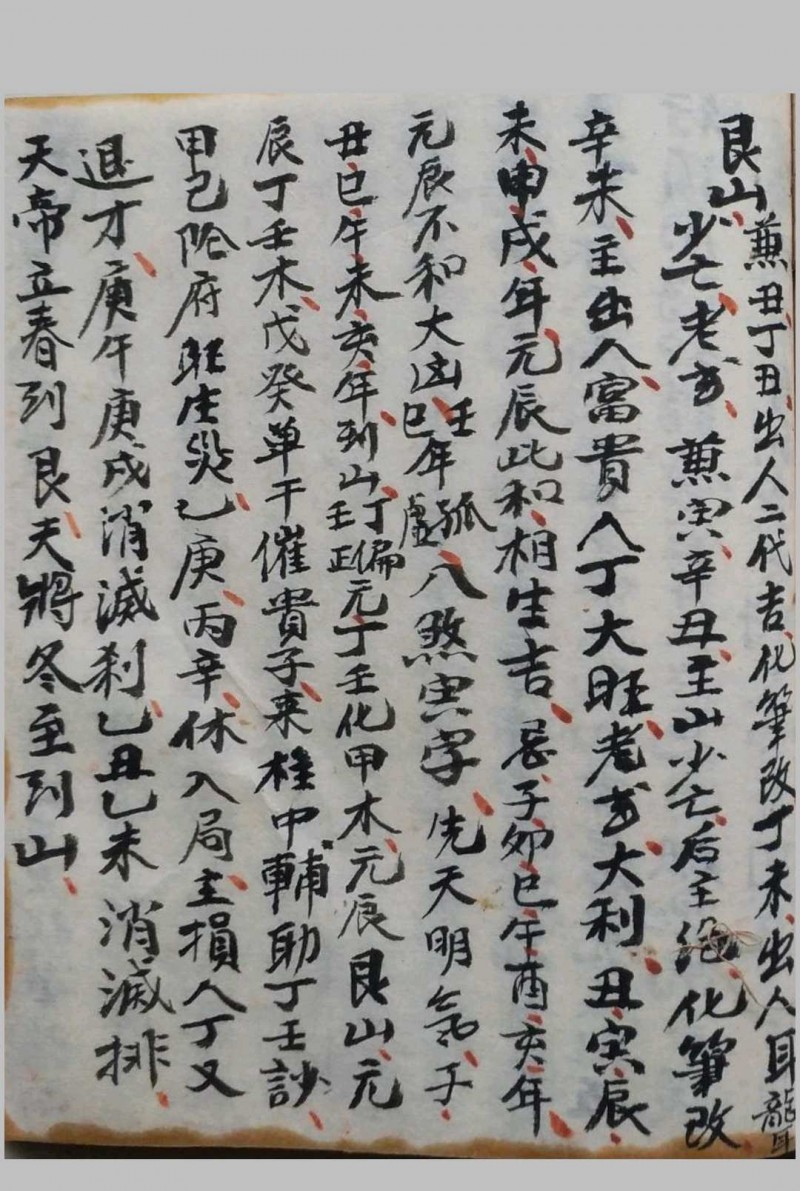 艮山兼丑、丁丑、出人二代吉、化筆改丁未、出人耳龍耳
少亡、老方、兼寅、辛丑、主山少亡、后主绝、化筆改
辛未、主出人富貴人丁大旺、老方大利、丑寅辰
未申戌年、元辰此和、相生吉、忌、子卯巳午酉亥年、
元辰不和大凶、壬巳年孤虚、八煞寅字、先天明氣、子
丑巳午未亥年到山、丁壬偏正元丁壬化甲木、元辰艮山、元
辰丁壬木、戊癸单干催貴子来、柱中輔助丁壬訬、
甲己陰府旺生災、乙庚、丙辛、休入局、主損人丁又
退才、庚午庚戌消滅刹、乙丑乙未消滅排、
天帝立春到艮、夫將冬至到山、